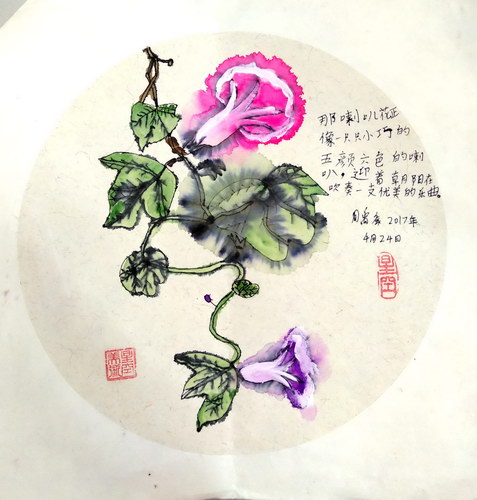 那喇叭花正
像一只只小巧的
五颜六色的喇
叭，迎着朝阳在
吹奏一支优美的乐曲。
2017年
4月24日
星空
星空